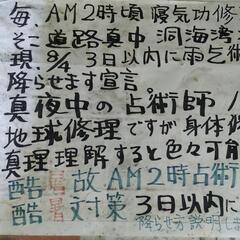 毎、AM2時頃 寝気功修
そこ道路真中 洞海湾
現、8/4 3日以内に雨乞術
降らせます宣言
真夜中の占術師
地球修理ですが身体修
真理理解すると色々可
酷暑故AM2時占術
酷暑対策 3日以内に
降らせ方説明しま